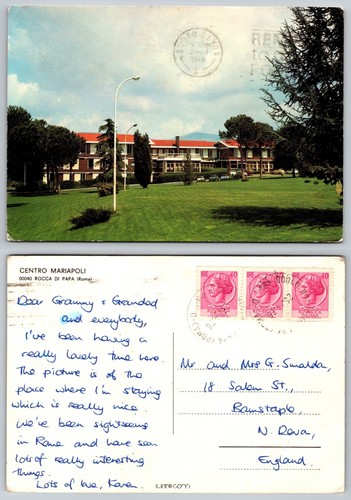 CENTRO MARIAPOLI
00040 ROCCA DI PAPA (Roma)
Dear Granny & Grandad
and everybody,
I've been having a
really lovely time here.
The picture is of the
place where I'm staying
which is really nice.
We've been sightseeing
in Rome and have seen
lots of really interesting
things.
Lots of love, Karen.
Mr. and Mrs G. Smalda,
18 Salem St.,
Barnstaple,
N. Devon,
England.